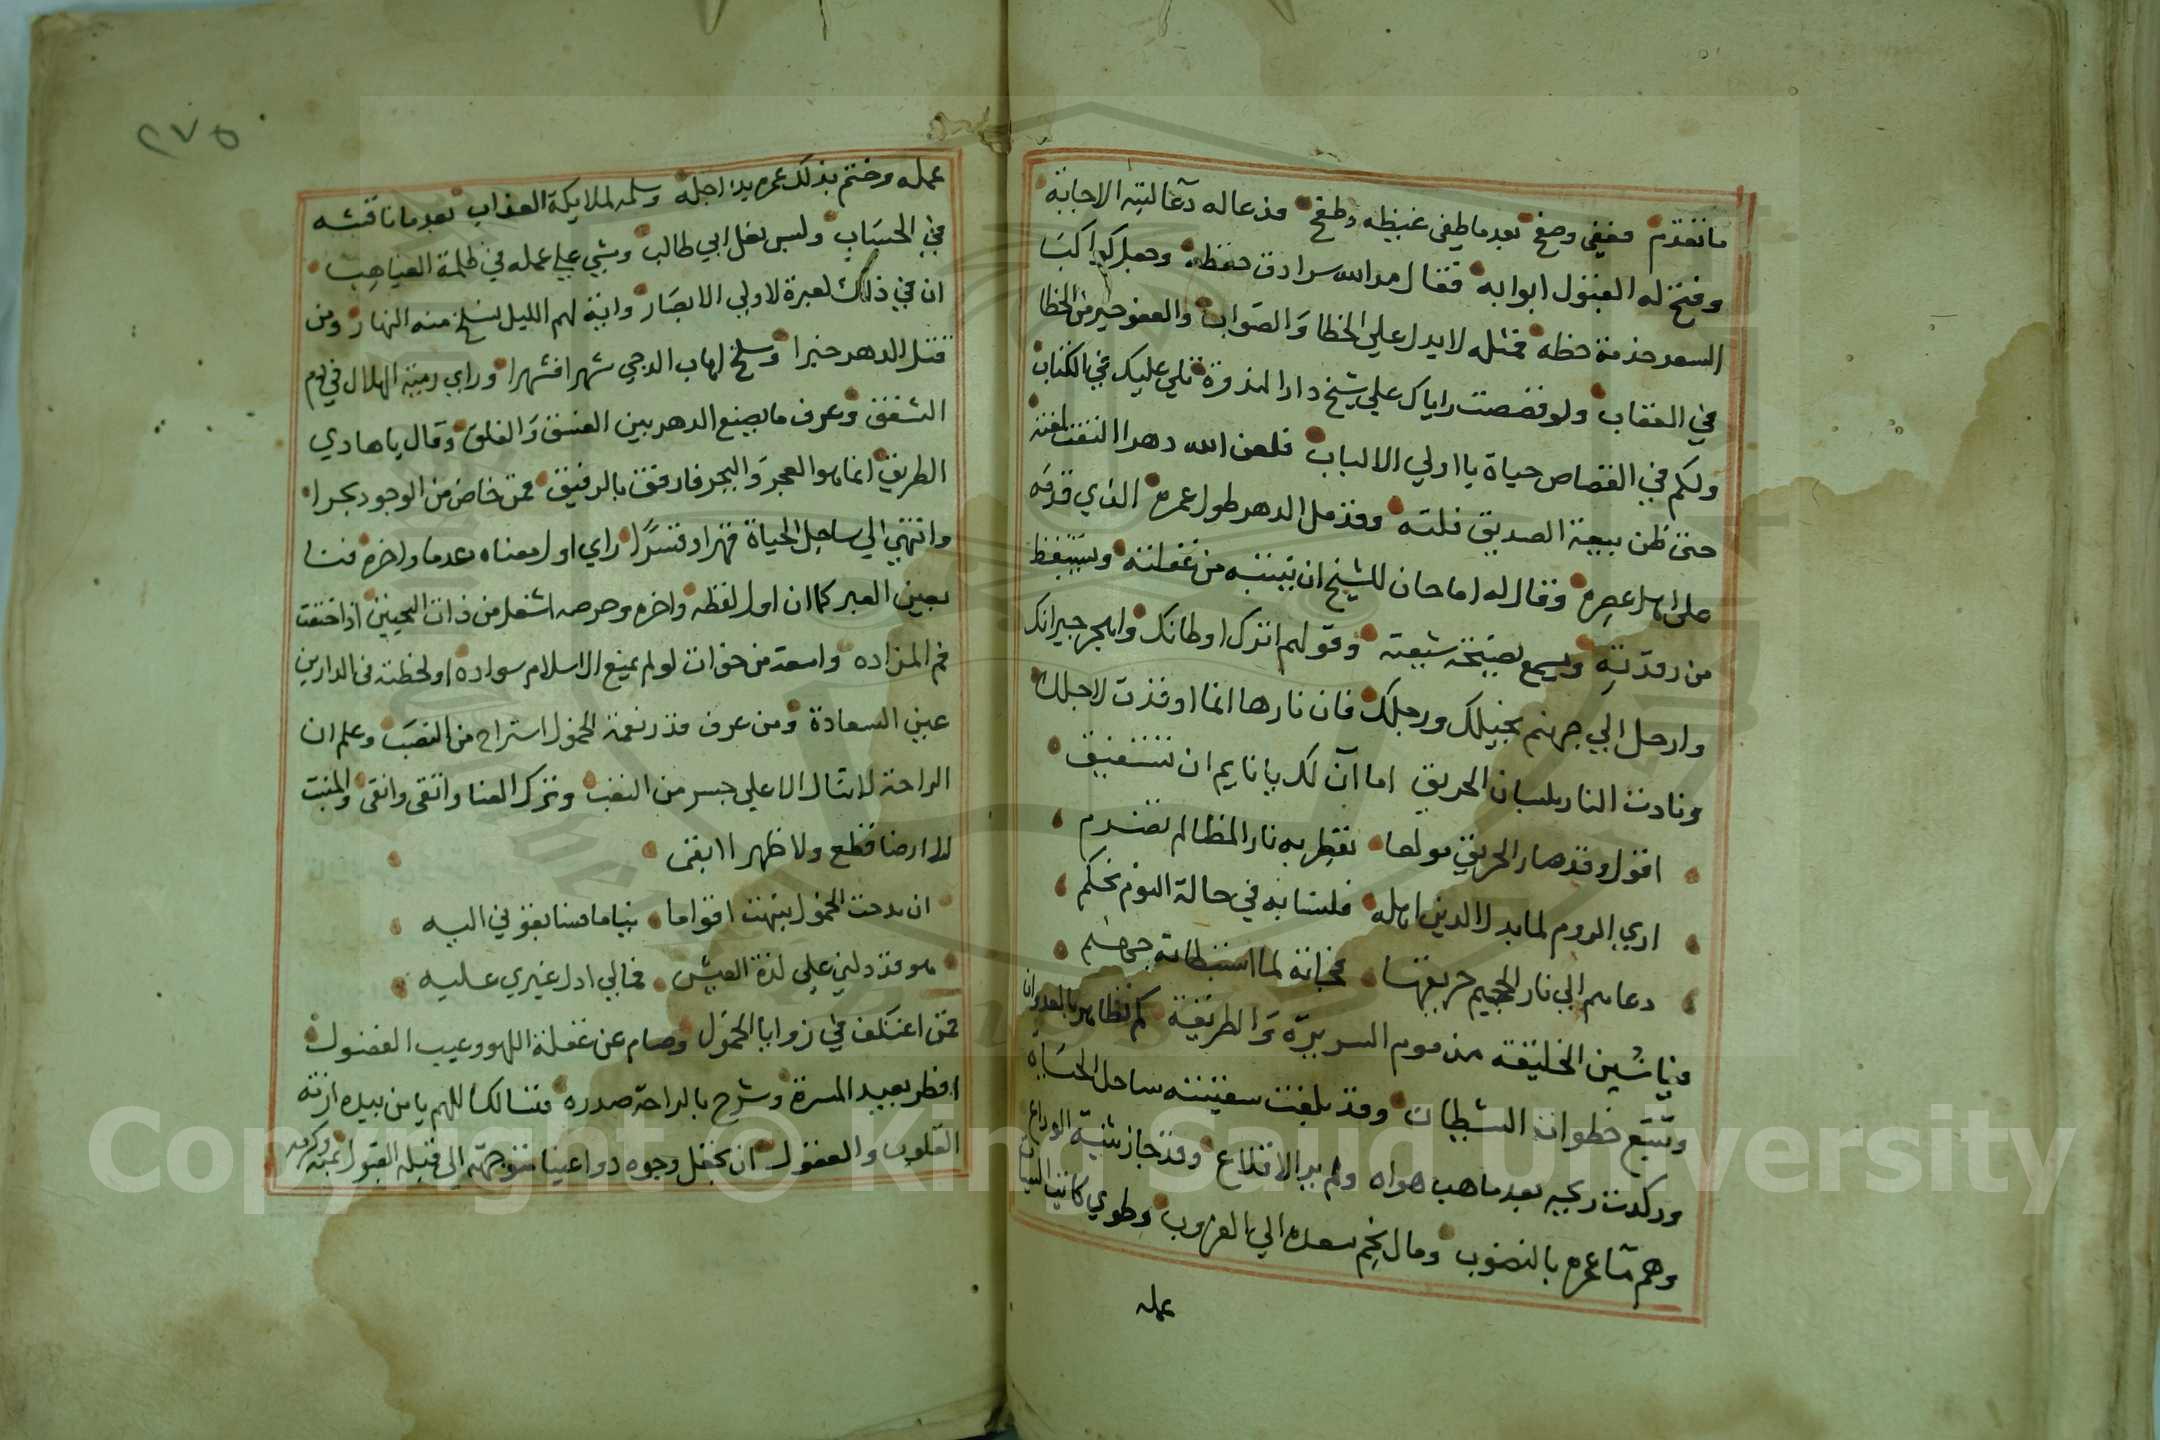 ما تقدم فعفى وصفح بعد ما طفى غيظه وطفح قد عا له دعا لبته الاجابة
وفتح له القبول ابوابه فقال مد الله سرادق حفظه وجعل كواكب
السعد خدمة حظه مثله لا يدل على الخطا والصواب والعفو خير من الخطا
في العقاب ولو قصصت راياك على شيخ دار الندوة تلي عليك في الكتاب
ولكم في القصاص حياة يا اولي الالباب فلعن الله دهرا
حتى ظن بيعة الصديق فلته وقد مل الدهر طول عمره الذي
على اهل عصره وقال له اما حان للشيخ ان ينتبه من غفلته ويستيقظ
من رقدته ويسمع نصيحة شيعته وقولهم اترك اوطانك واهجر جيرانك
وارحل الى جهنم بخيلك ورجلك فان نارها انما اوقدت لاجلك
ونادت النار بلسان الحريق اما آن لك يا نايم ان تستفيق
اقول وقد صار الحريق مولعا بقطر به نار المظالم تضرم
ارى الروم لما بدلا الدين اهله فلسنا به في حالة اليوم نحكم
دعاهم الى نار الجحيم حريقها فجاته لما استبطاته جهنم
فيا شين الخليقة مذموم السريرة والطريقة كم تظاهر بالعدوان
وتتبع خطوات الشيطان وقد بلغت سفينته ساحل الحساب
وركدت ريحه بعد ما هب هواه ولم ير الاقلاع وقد جاز ثنية الوداع
وهم ماء عمره بالنضوب ومال نجم سعده الى الغروب وطوى كاتب السيات
عمله
٢٧٥
عمله وختم بذلك عمره يد اجله وسلمه لملايكة العذاب بعد ما ناقشه
في الحساب ولبس نعل ابي طالب ومشى على عمله في ظلمة الغياهب
ان في ذلك لعبرة لاولي الابصار واية لهم الليل نسلخ منه النهار ومن
قتل الدهر خبرا وسلخ اهاب الدجى شهرا فشهرا وراى رمية الهلال في دم
الشفق وعرف ما يصنع الدهر بين الغسق والفلق وقال يا هادي
الطريق انما هو الفجر والبحر فارفق بالرفيق فمن خاض من الوجود بحرا
وانتهى الى ساحل الحياة قهرا وقسرا راى اول معناه عدما واخره فنا
بعين العبر كما ان اول لفظه واخره وحرصه اشغل من ذات النحيين اذا ختفت
فم المزاده واسعد من خوات لو لم يمنع الاسلام سواده او لحظته في الدارين
عين السعادة ومن عرف قدر نعمة الخمول استراح من النصب وعلم ان
الراحة لا تنال الا على جسر من التعب وترك العنا واتقى وانقى والمنبت
لا ارضا قطع ولا ظهرا ابقى
ان مدحت الخمول نبهت اقواما نياما فسابقوني اليه
هو قد دلني على لذة العيش فمالي ادل غيري عليه
فمن اعتكف في زوايا الخمول وصام عن غفلة اللهو وعيب الفضول
افطر بعيد المسرة وشرح بالراحة صدره فنسالك اللهم يا من بيده ازمة
القلوب والعقول ان تجعل وجوه دواعينا متوجهة الى قبلة القبول بمنه وكرمه